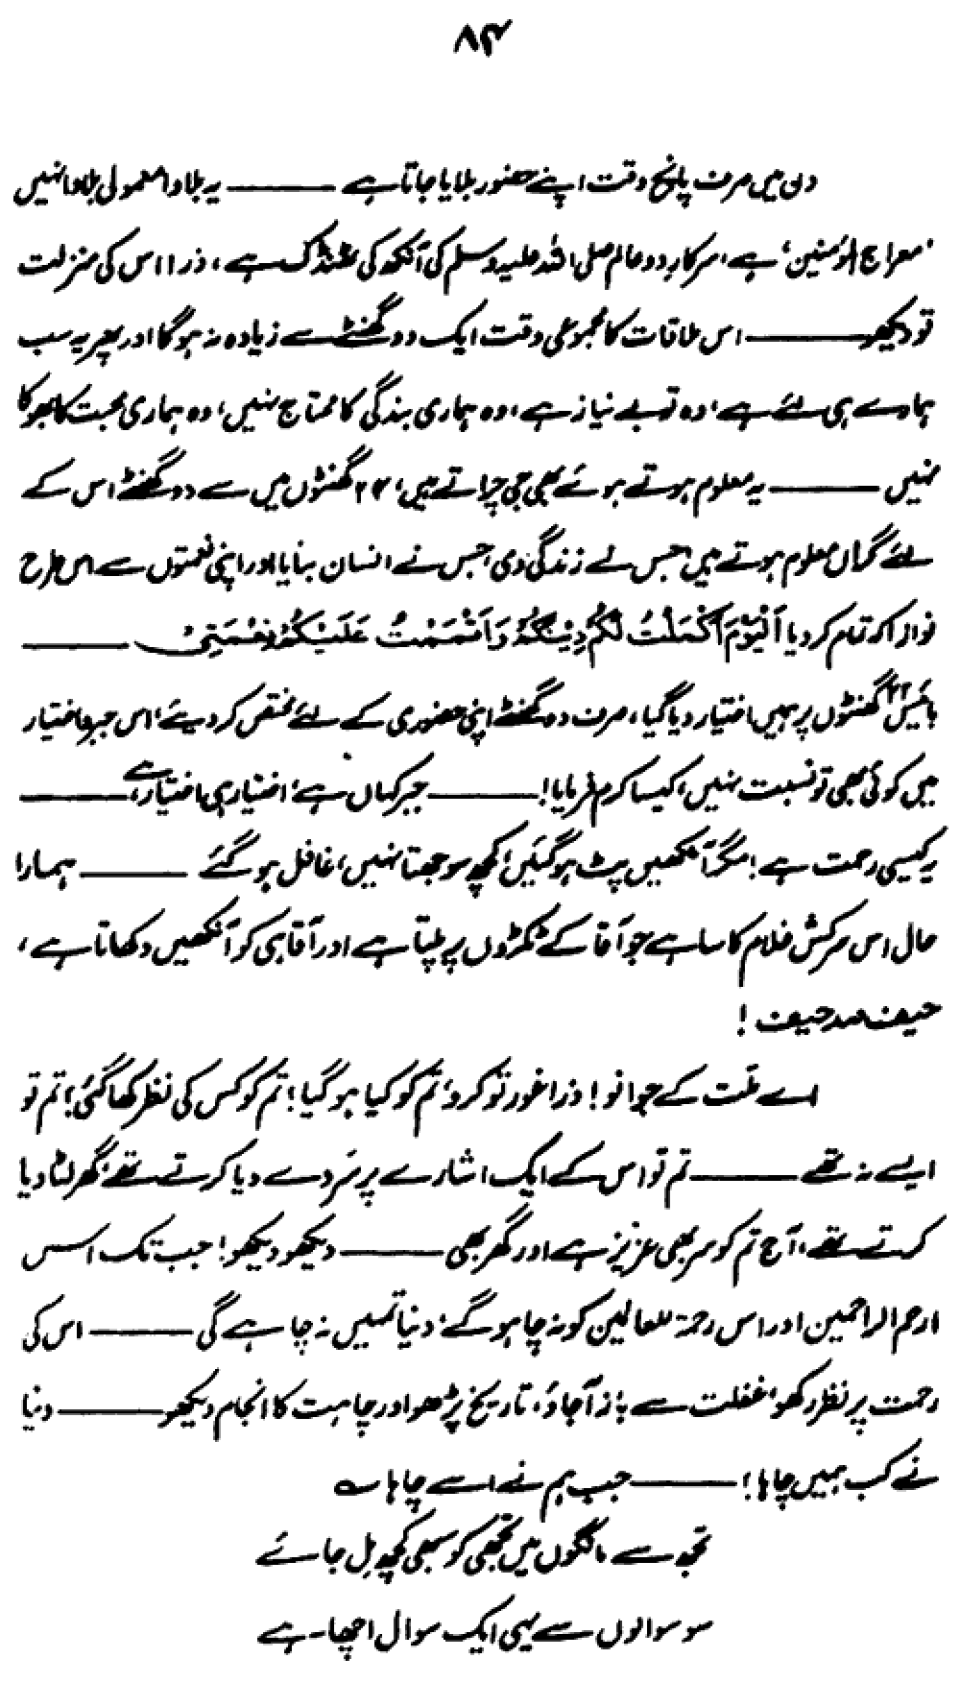 ۸۴
دن میں صرف پانچ وقت اپنے حضور بلایا جاتا ہے ——— یہ بلاوا معمولی بلاوا نہیں
’معراج المؤمنین‘ ہے، سرکارِ دو عالم صلی اللہ علیہ وسلم کی آنکھ کی ٹھنڈک ہے، ذرا اس کی منزلت
تو دیکھو ——— اس ملاقات کا مجموعی وقت ایک دو گھنٹے سے زیادہ نہ ہوگا اور پھر یہ سب
ہمارے ہی لئے ہے، وہ تو بے نیاز ہے، وہ ہماری بندگی کا محتاج نہیں، وہ ہماری محبت کا بھوکا
نہیں ——— یہ معلوم ہوتے ہوئے بھی جی چراتے ہیں، ۲۴ گھنٹوں میں سے دو گھنٹے اس کے
لئے گراں معلوم ہوتے ہیں جس نے زندگی دی، جس نے انسان بنایا اور اپنی نعمتوں سے اس طرح
نوازا کہ تمام کر دیا اَلْیَوْمَ اَکْمَلْتُ لَکُمْ دِیْنَکُمْ وَاَتْمَمْتُ عَلَیْکُمْ نِعْمَتِیْ ———
بائیس ۲۲ گھنٹوں پر ہمیں اختیار دیا گیا، صرف دو گھنٹے اپنی حضوری کے لئے مختص کر دیئے، اس جبر و اختیار
میں کوئی بھی تو نسبت نہیں، کیسا کرم فرمایا! ——— جبر کہاں ہے، اختیار ہی اختیار ہے، ———
یہ کیسی رحمت ہے! مگر آنکھیں پٹ ہو گئیں، کچھ سوجھتا نہیں، غافل ہو گئے ——— ہمارا
حال اس سرکش غلام کا سا ہے جو آقا کے ٹکڑوں پر پلتا ہے اور آقا ہی کو آنکھیں دکھاتا ہے،
حیف صد حیف !
اے ملّت کے جوانو! ذرا غور تو کرو، تم کو کیا ہو گیا! تم کو کس کی نظر کھا گئی؟ تم تو
ایسے نہ تھے ——— تم تو اس کے ایک اشارے پر سَر دے دیا کرتے تھے، گھر لٹا دیا
کرتے تھے، آج تم کو سر بھی عزیز ہے اور گھر بھی ——— دیکھو دیکھو! جب تک اس
ارحم الراحمین اور اس رحمۃ للعالمین کو نہ چاہو گے، دنیا تمہیں نہ چاہے گی ——— اس کی
رحمت پر نظر رکھو، غفلت سے باز آجاؤ، تاریخ پڑھو اور چاہت کا انجام دیکھو ——— دنیا
نے کب ہمیں چاہا؟ ——— جب ہم نے اسے چاہا ؎
تجھ سے مانگوں میں تجھی کو سبھی کچھ مِل جائے
سو سوالوں سے یہی ایک سوال اچھا ہے